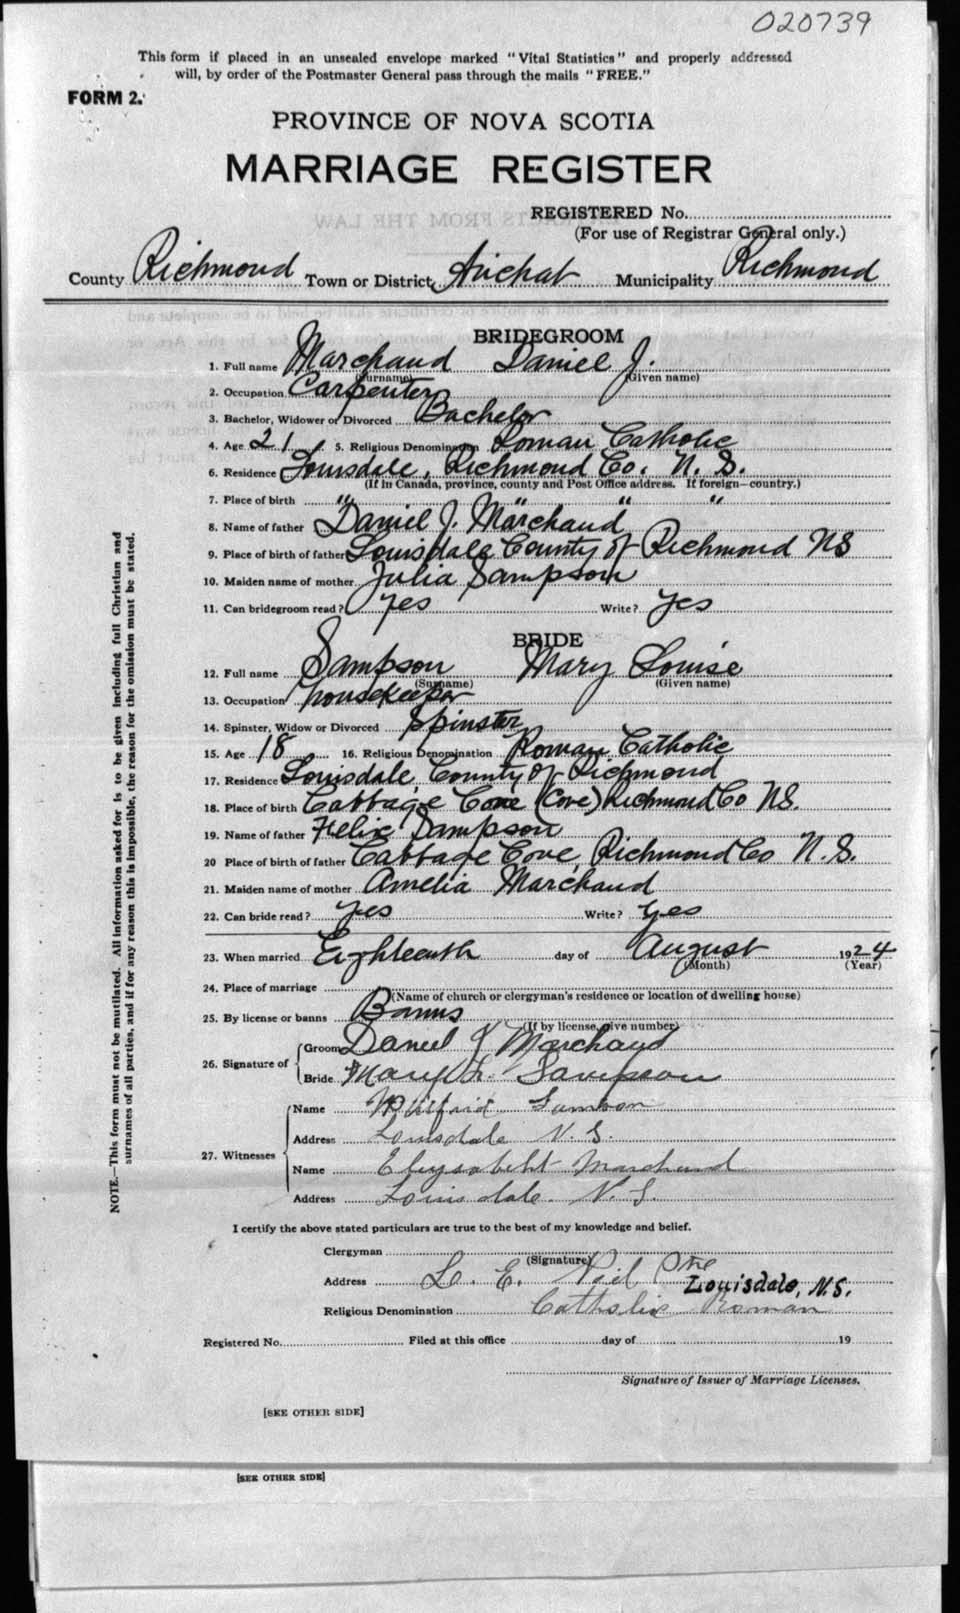 020739
This form if placed in an unsealed envelope marked "Vital Statistics" and properly addressed
will, by order of the Postmaster General pass through the mails "FREE."
FORM 2.
PROVINCE OF NOVA SCOTIA
MARRIAGE REGISTER
REGISTERED No.
(For use of Registrar General only.)
County Richmond Town or District Arichat Municipality Richmond
BRIDEGROOM
1. Full name Marchand Daniel J.
(Surname) (Given name)
2. Occupation Carpenter
3. Bachelor, Widower or Divorced Bachelor
4. Age 21 5. Religious Denomination Roman Catholic
6. Residence Louisdale, Richmond Co. N. S.
(If in Canada, province, county and Post Office address. If foreign—country.)
7. Place of birth " " " "
8. Name of father Daniel J. Marchand
9. Place of birth of father Louisdale County of Richmond NS
10. Maiden name of mother Julia Sampson
11. Can bridegroom read? yes Write? yes
BRIDE
12. Full name Sampson Mary Louise
(Surname) (Given name)
13. Occupation housekeeper
14. Spinster, Widow or Divorced Spinster
15. Age 18 16. Religious Denomination Roman Catholic
17. Residence Louisdale, County of Richmond
18. Place of birth Cabbage Cove (Cove) Richmond Co NS.
19. Name of father Felix Sampson
20 Place of birth of father Cabbage Cove, Richmond Co N. S.
21. Maiden name of mother Amelia Marchand
22. Can bride read? yes Write? yes
23. When married Eighteenth day of August 1924
(Month) (Year)
24. Place of marriage
(Name of church or clergyman's residence or location of dwelling house)
25. By license or banns Banns
(If by license, give number)
26. Signature of Groom Daniel J Marchand
Bride Mary L. Sampson
27. Witnesses
Name Wilfrid Samson
Address Louisdale N. S.
Name Elysabeht Marchand
Address Louisdale. N. S.
I certify the above stated particulars are true to the best of my knowledge and belief.
Clergyman
(Signature)
Address L. E.
Louisdale, N.S.
Religious Denomination Catholic Roman
Registered No. Filed at this office day of 19
Signature of Issuer of Marriage Licenses.
[SEE OTHER SIDE]
[SEE OTHER SIDE]
NOTE.—This form must not be mutilated. All information asked for is to be given including full Christian and
surnames of all parties, and if for any reason this is impossible, the reason for the omission must be stated.